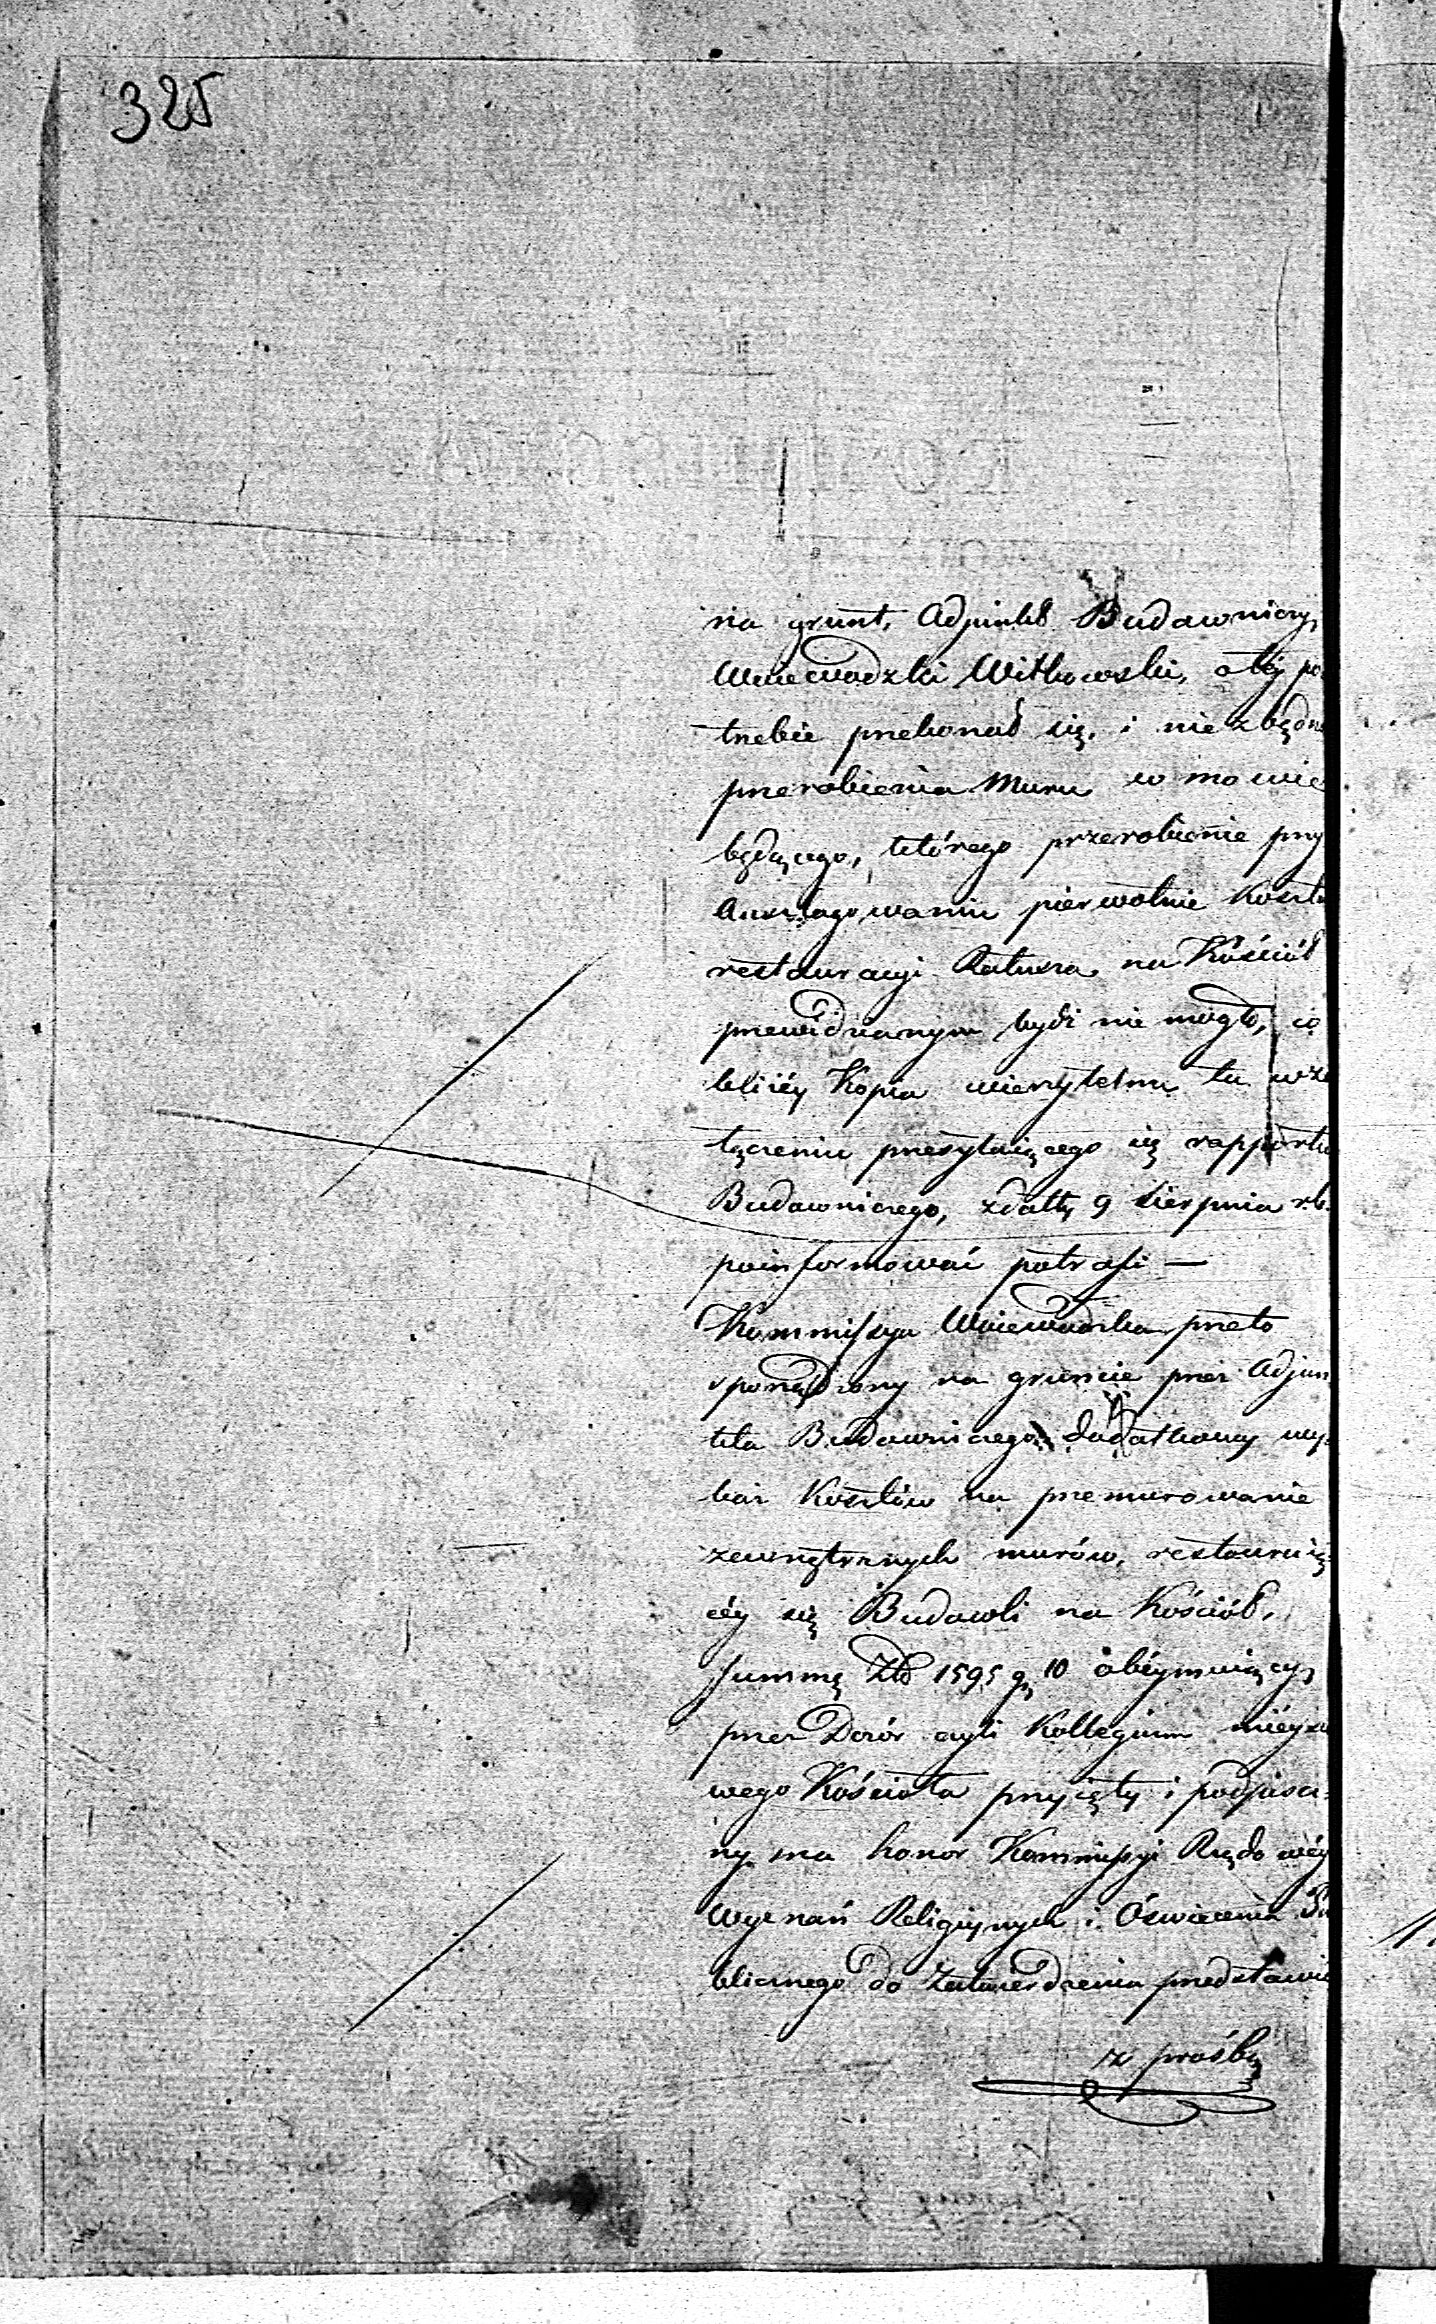 325
na grunt, Adjunkt Budowniczy,
Woiewodzki Witkowski, o téy po
trzebie przekonał się, i niezbędne
przerobienia Muru w mowie
będącego, którego przerobienie przy
Anszlagowaniu pierwotnie Kosztu
restauracyi Ratusza na Kościół
przewidzianym bydź nie mogło, co
bliżéy Kopia wierzytelna tu w za
łączeniu przesyłaiącego się rapportu
Budowniczego, z daty 9 Sierpnia r. b.
poinformować potrafi —
Kommissya Woiewodzka przeto
sporządzony na gruncie przez Adjun
kta Budowniczego dodatkowy wy
kaz Kosztów na przemurowanie
zewnętrznych murów, restauruią
céy się Budowli na Kościół,
summę Złł 1595 gr 10 obéymuiący,
przez Dozór czyli Kollegium miéysco
wego Kościoła przyięty i podpisa
ny ma honor Kommissyi Rządowéy
Wyznań Religiynych i Oświecenia Pu
blicznego do Zatwierdzenia przedstawić
z prośbą